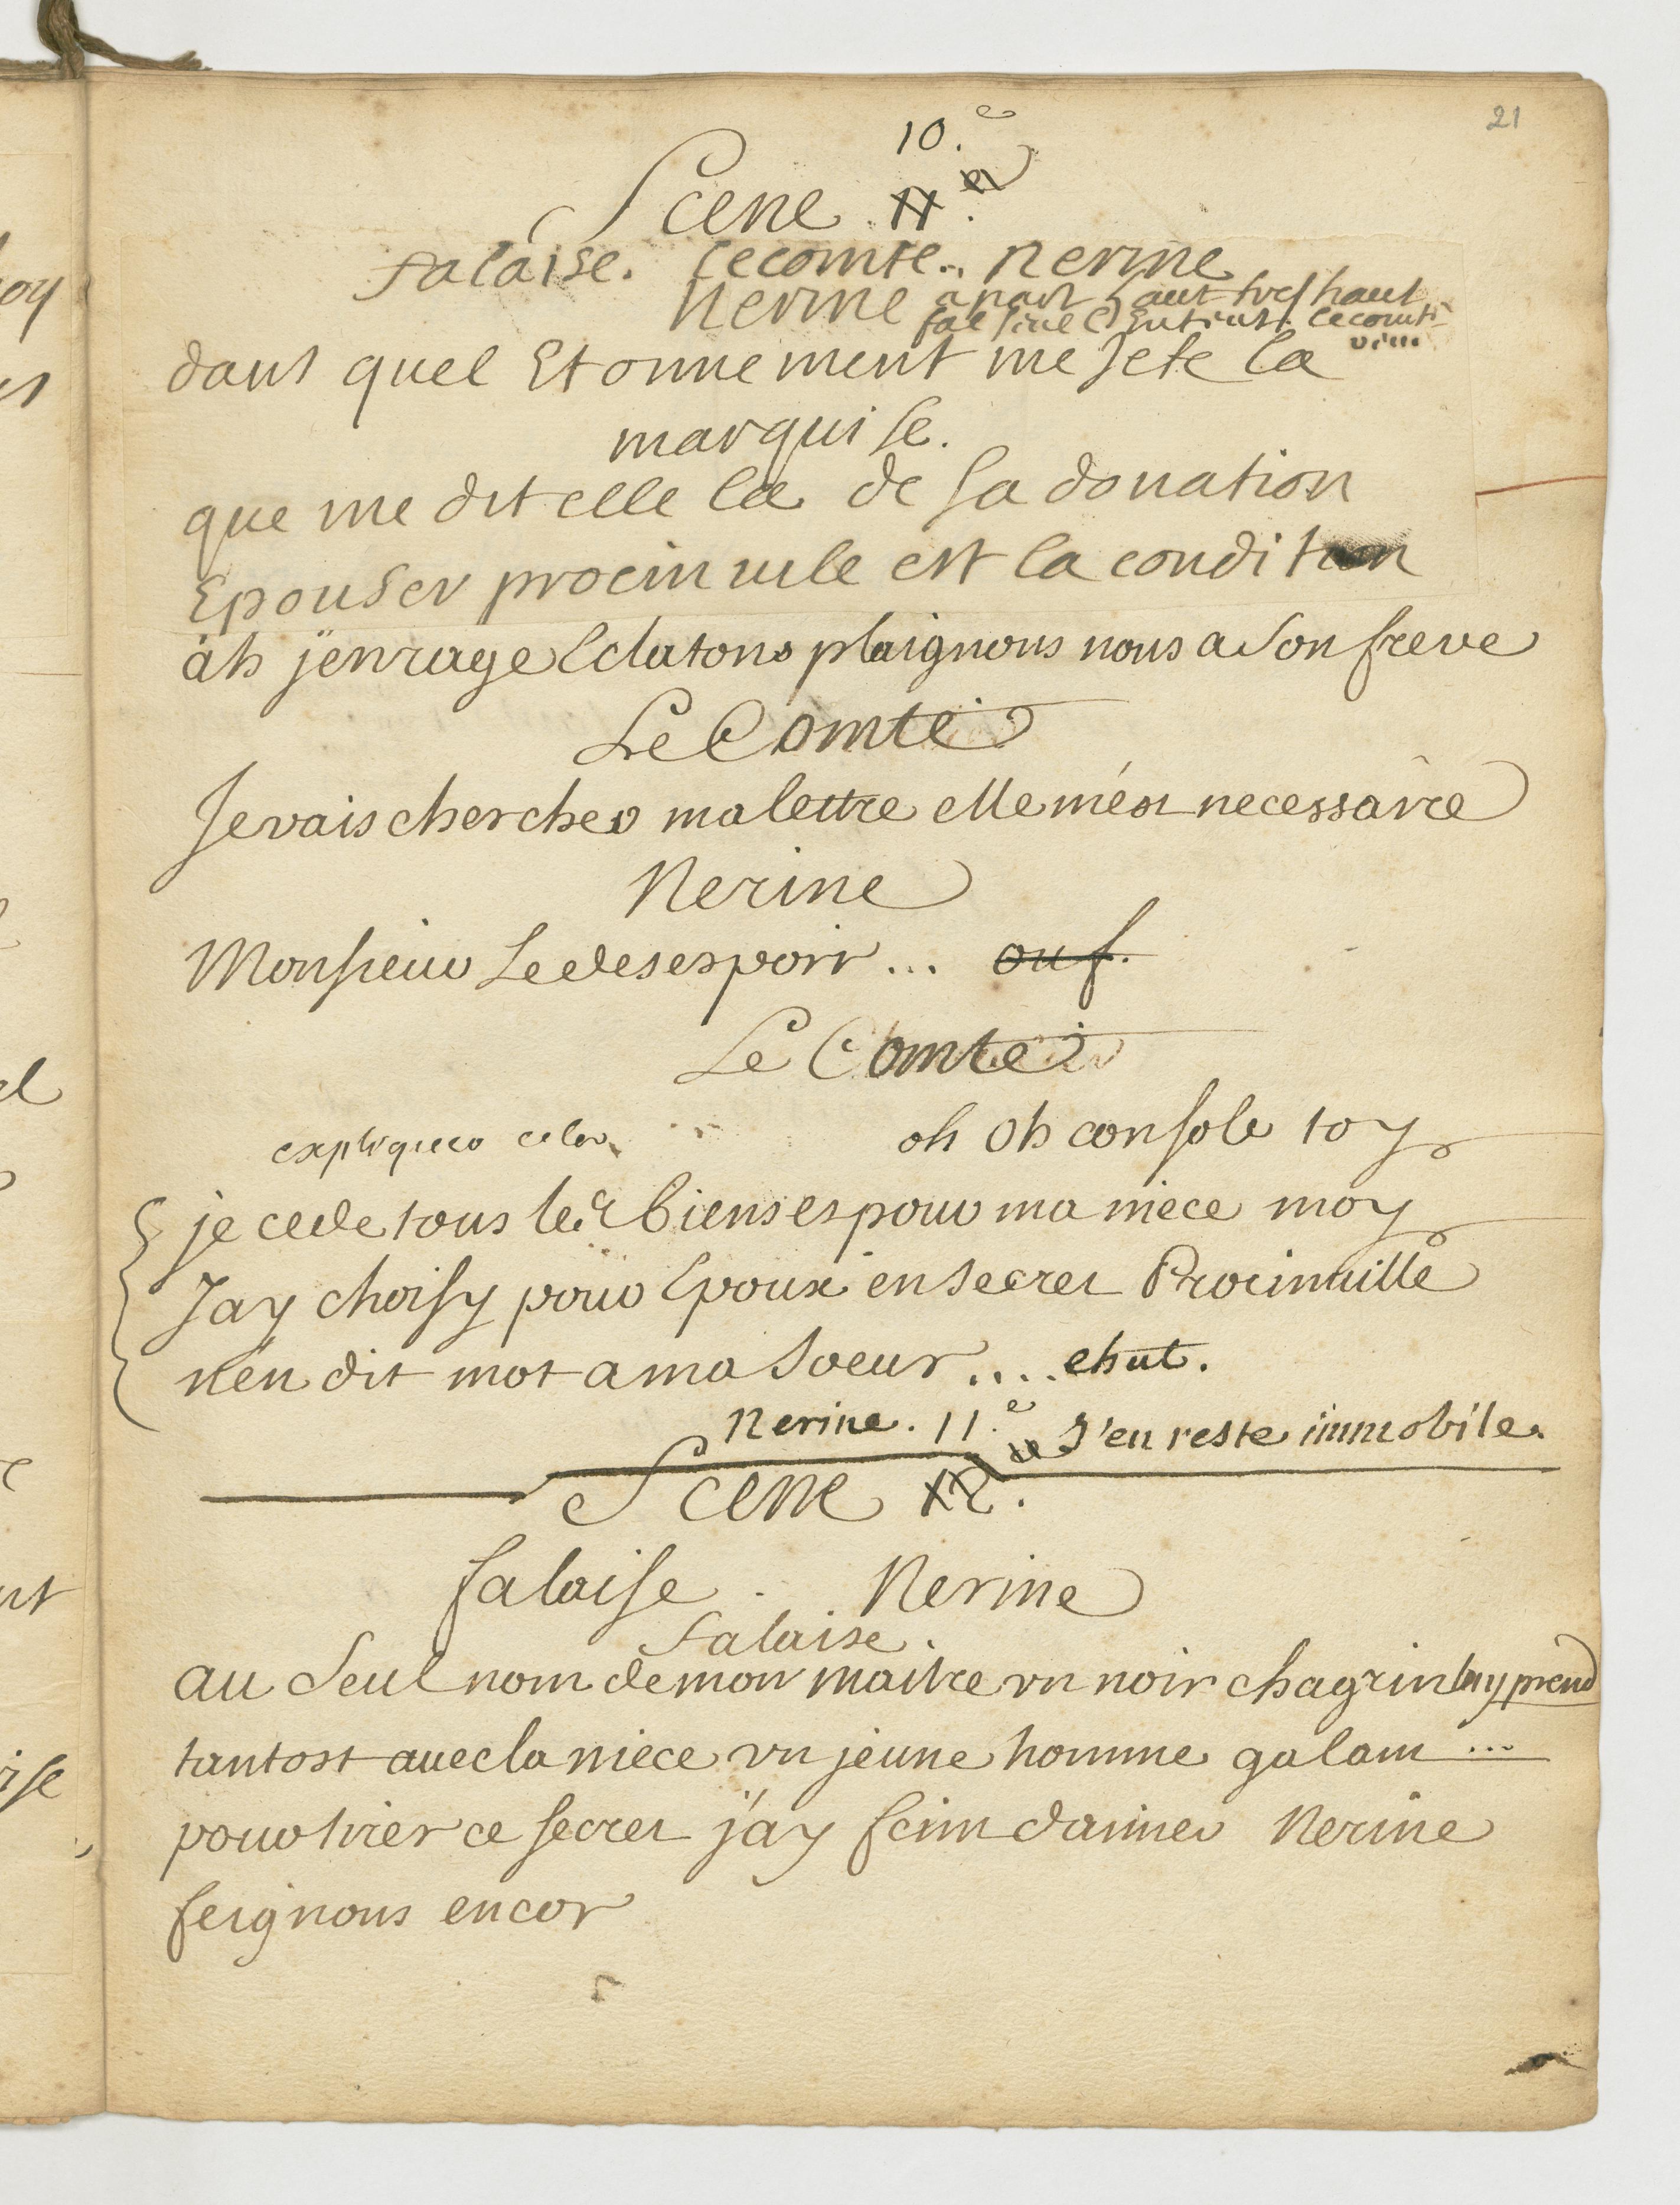 21
10.e
Scene 11.e
falaise. le comte. nerine
Nerine a part haut tres haut
le comte
dans quel Etonnement me jete la
marquise.
que me dit elle la de sa donation
Epouser procinuile est la condition
äh j'enrage Eclatons plaignons nous a son frere
Le Comte
Je vais chercher ma lettre elle m'est necessaire
Nerine
Monsieur Le desespoir ... ouf.
Le Comte
expliques cela oh oh console toy
je cede tous les biens et pour ma niece moy
J'ay choisy pour Epoux en secret Procinuille
n'en dit mot a ma soeur .... chut.
Nerine. 11.e J'en reste immobile.
Scene 12.
falaise. Nerine
falaise.
au seul nom de mon maitre vn noir chagrin luy prend
tantost auec la niece vn jeune homme galant ...
pour tirer ce secret j'ay feint d'aimer Nerine
feignons encor